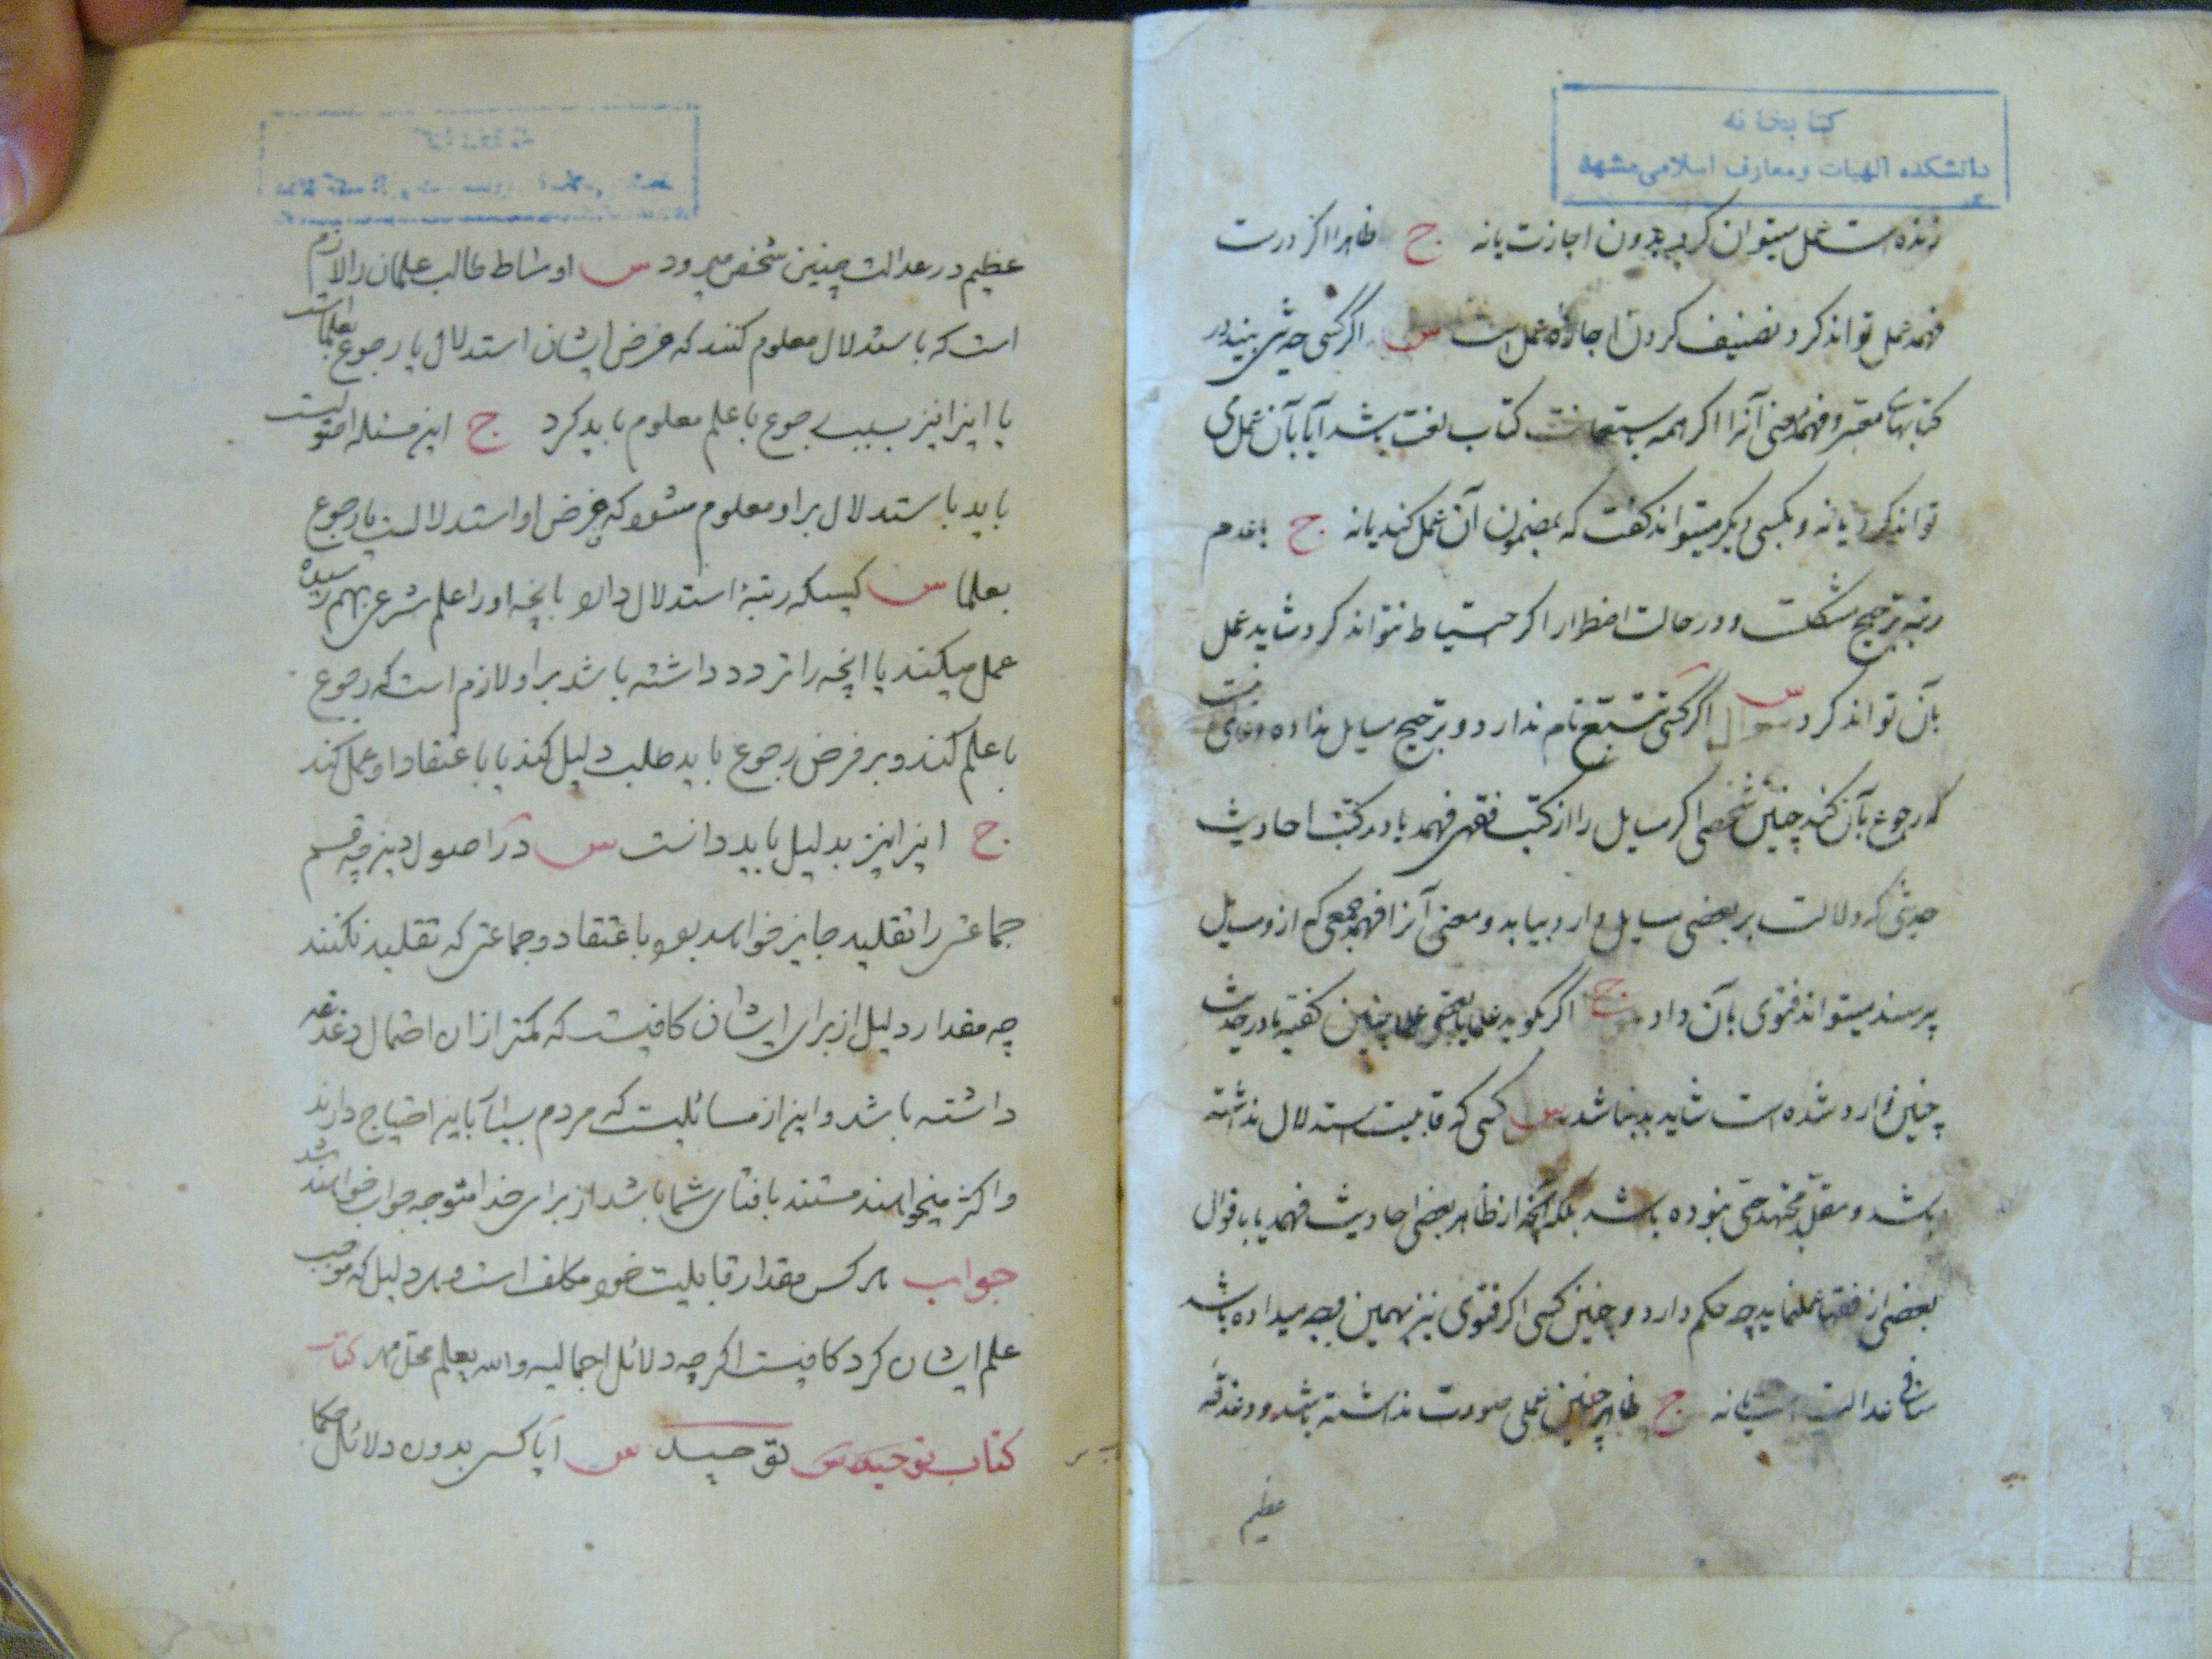 کتابخانه
دانشکده الهیات و معارف اسلامی مشهد
زنده است عمل میتوان کرد بدون اجازت یا نه ج ظاهرا اگر درست
فهمد عمل تواند کرد و تصنیف کردن اجازه عمل است س اگر کسی حدیثی بیند در
کتابهای معتبر و فهمد معنی آنرا اگر همه باستعانت کتاب لغت باشد آیا بآن عمل می
تواند کرد یا نه و بکسی دیگر میتواند گفت که بمضمون آن عمل کند یا نه ج با عدم
رتبه ترجیح مشکلست و در حالت اضطرار اگر احتیاط نتواند کرد شاید عمل
بآن تواند کرد سوال س اگر کسی تتبع تام ندارد و ترجیح مسایل نداده
که رجوع بآن کند چنین شخصی اگر مسایل را از کتب فقهی فهمد یا در کتب احادیث
حدیثی که دلالت بر بعضی مسایل دارد بیابد و معنی آنرا فهمد جمعی که ازو مسایل
پرسند میتواند فتوی بآن داد ج اگر بگوید علما یا بعضی علما چنین گفته یا در حدیث
چنین وارد شده است شاید بد نباشد س کسی که قابلیت استدلال نداشته
باشد و مقلد مجتهد حی نبوده باشد بلکه آنچه از ظاهر بعضی احادیث فهمد یا باقوال
بعضی از فقها عمل نماید چه حکم دارد و چنین کسی اگر فتوی نیز بهمین وجه میداده باشد
منافی عدالت است یا نه ج ظاهرا چنین عملی صورت نداشته باشد و دغدغه
عظیم
عظیم در عدالت چنین شخص میرود س اوساط طالب علمان را لازم
است که باستدلال معلوم کنند که فرض ایشان استدلال یا رجوع بعلما است
یا اینرا نیز بسبب رجوع باعلم معلوم باید کرد ج این مسئله اصولیست
باید باستدلال بر او معلوم شود که فرض او استدلالست یا رجوع
بعلما س کسیکه رتبهٔ استدلال دارد بانچه او را علم شرعی بهم رسیده
عمل میکند یا انچه را تردد داشته باشد بر او لازم است که رجوع
باعلم کند و بر فرض رجوع باید طلب دلیل کند یا باعتقاد او عمل کند
ج اینرا نیز بدلیل باید دانست س در اصول دین چه قسم
جماعتی را تقلید جایز خواهد بود باعتقاد و جماعتی که تقلید نکنند
چه مقدار دلیل از برای ایشان کافیست که کمتر از ان احتمال دغدغه
داشته باشد و این از مسائلیست که مردم بسیار باین احتیاج دارند
و اکثر میخواهند مستند بافتای شما باشد از برای خدا متوجه جواب خواهند شد
جواب هر کس مقدار قابلیت خود مکلف است و هر دلیل که موجب
علم ایشان کرد کافیست اگر چه دلائل اجمالیه و الله یعلم کتاب
کتاب توحید س توحید س آیا کسی بدون دلائل حکما